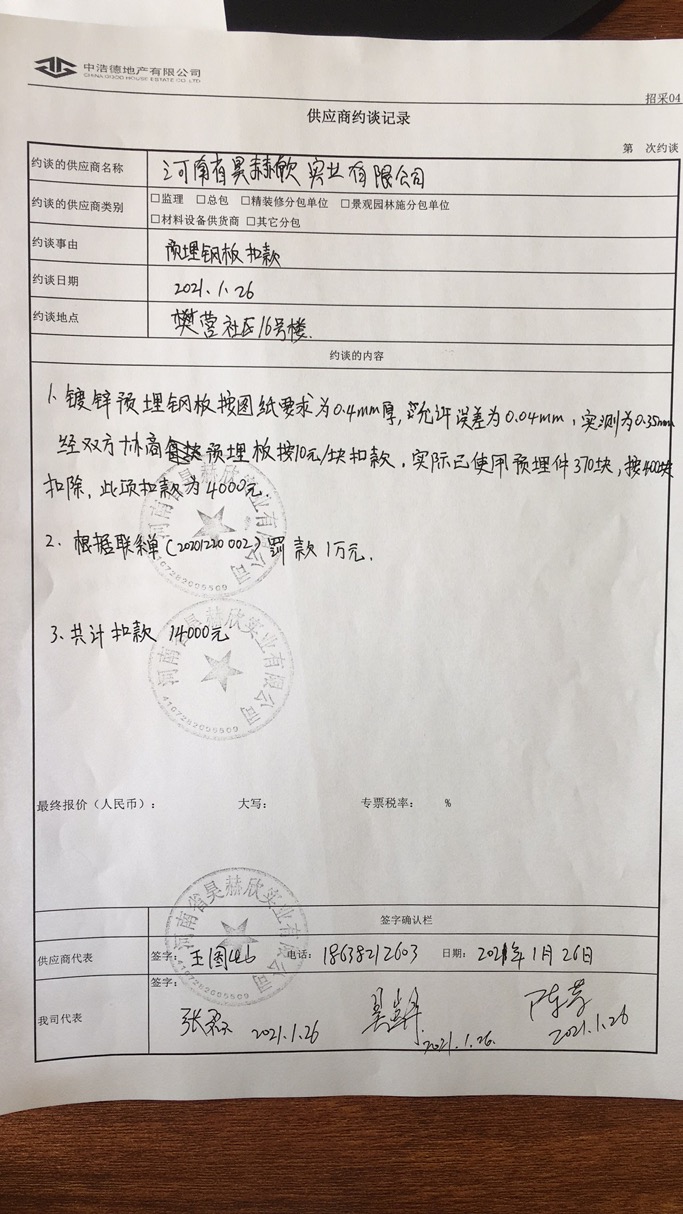 中浩德地产有限公司
CHINA GOOD HOUSE ESTATE CO.,LTD
招采04
供应商约谈记录
第 次约谈
约谈的供应商名称 河南省昊赫欣实业有限公司
约谈的供应商类别 □监理 □总包 □精装修分包单位 □景观园林施分包单位
□材料设备供货商 □其它分包
约谈事由 预埋钢板扣款
约谈日期 2021.1.26
约谈地点 樊营社区16号楼.
约谈的内容
1. 镀锌预埋钢板按图纸要求为0.4mm厚,允许误差为0.04mm,实测为0.35mm
经双方协商预埋板按10元/块扣款,实际已使用预埋件370块,按400块
扣除,此项扣款为4000元.
2. 根据联系单(20201220002)罚款1万元.
3. 共计扣款 14000元
河南省昊赫欣实业有限公司
4107282005509
河南省昊赫欣实业有限公司
4107282005509
最终报价(人民币): 大写: 专票税率: %
河南省昊赫欣实业有限公司
签字确认栏
供应商代表 签字: 王 电话: 18638212603 日期: 2021年1月26日
我司代表 签字:
张 2021.1.26 2021.1.26. 陈 2021.1.26